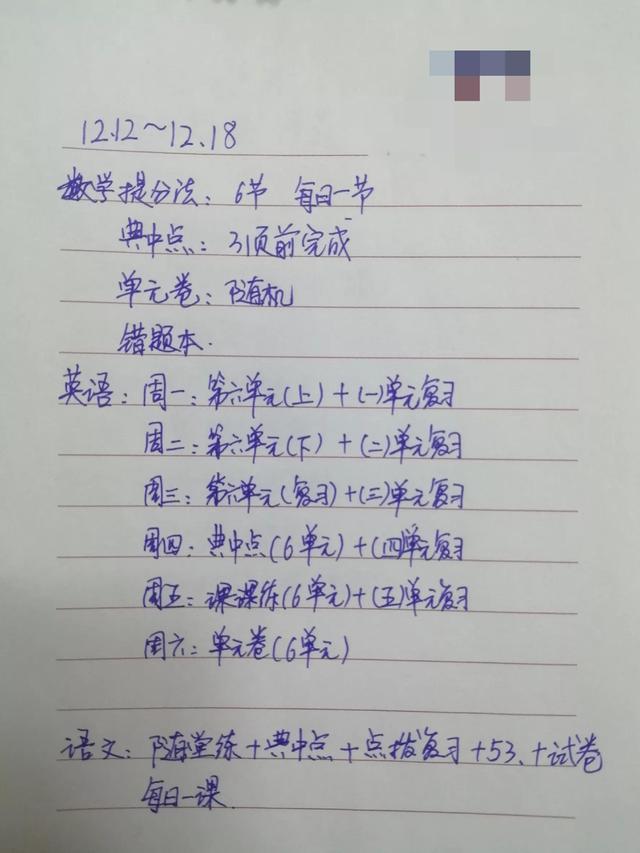 12.12～12.18
数学提分法：6节 每日一节
典中点：31页前完成
单元卷：随机
错题本.
英语：周一：第六单元(上)+(一)单元复习
周二：第六单元(下)+(二)单元复习
周三：第六单元(复习)+(三)单元复习
周四：典中点(6单元)+(四)单元复习
周五：课课练(6单元)+(五)单元复习
周六：单元卷(6单元)
语文：随堂练+典中点+点拨复习+53、+试卷
每日一课.